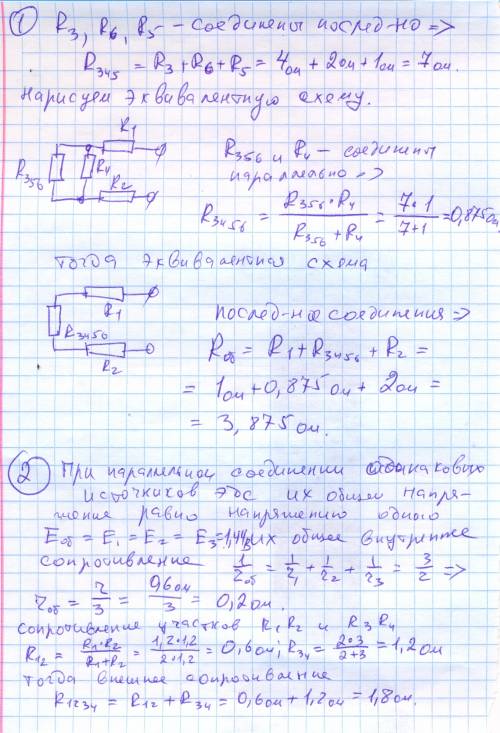 1 R3, R6, R5 – соединены послед-но =>
R345 = R3 + R6 + R5 = 4ом + 2ом + 1ом = 7ом.
нарисуем эквивалентную схему.
R1
R356
R4
R2
R356 и R4 – соединены
параллельно =>
R3456 = R356 · R4 / R356 + R4 = 7 · 1 / 7+1 = 0,875ом
тогда эквивалентная схема
R1
R3456
R2
послед-ное соединения =>
Rоб = R1 + R3456 + R2 =
= 1ом + 0,875ом + 2ом =
= 3,875ом.
2 При параллельном соединении одинаковых
источников эдс их общее напря-
жение равно напряжению одного
Eоб = E1 = E2 = E3 = 1,4В их общее внутренне
сопротивление 1/rоб = 1/r1 + 1/r2 + 1/r3 = 3/r =>
rоб = r/3 = 0,6ом/3 = 0,2ом.
Сопротивление участков R1R2 и R3R4
R12 = R1·R2 / R1+R2 = 1,2·1,2 / 2·1,2 = 0,6ом; R34 = 2·3 / 2+3 = 1,2ом
тогда внешнее сопротивление
R1234 = R12 + R34 = 0,6ом + 1,2ом = 1,8ом.